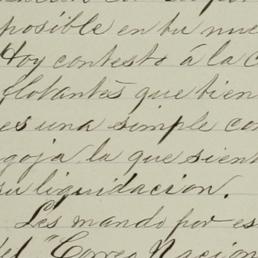 posible en tu nue
Hoy contesto á la c
flotantes que tien
es una simple con
goja la que sient
su liquidacion.
Les mando por es
del "Correo Nacion